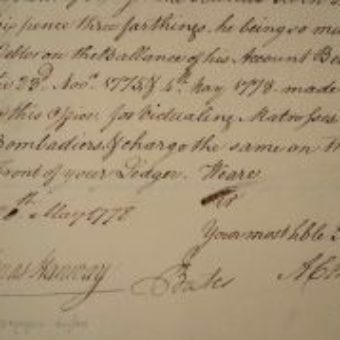 six pence three farthings. he being so mu
Debtor on the Ballance of his Account Be
23d. Novr. 1775 & 4th. May 1778. made
this Office for Victualing Matrosses
Bombadiers, & charge the same on th
Front of your Ledger. We are
Sr
th May 1778
Your most hble
Jonas Hanway
Bates